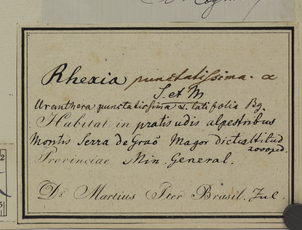 Rhexia punctatissima. α
S. et M
Uranthera punctatissima α. latifolia Bg.
Habitat in pratis udis alpestribus
Montis Serra de Graõ Magor dictus altitud
Provinciae Min. General.
Dr Martius Iter Brasil. Jul.